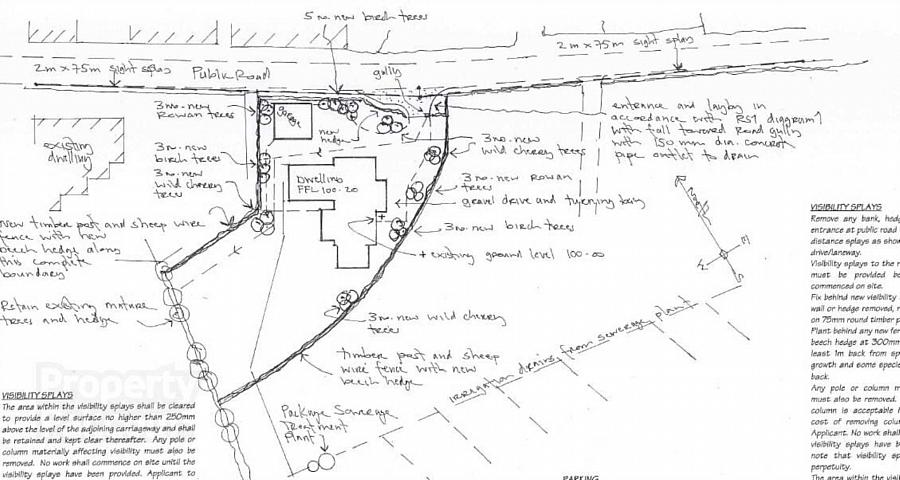 5 no. new birch trees
2m x 75m sight splay
2m x 75m sight splay
Public Road
gully
3 no. new
Rowan trees
garage
entrance and layby in
accordance with RS1 diagram 1
with fall towards Road gully
with 150mm dia. concrete
pipe outlet to drain
existing
dwelling
3 no. new
birch trees
3 no. new
wild cherry
trees
new
hedge
3 no. new
wild cherry trees
Dwelling
FFL 100.20
3 no. new Rowan
trees
gravel drive and turning bay
3 no. new birch trees
+ existing ground level 100.00
North
E
W
S
new timber post and sheep wire
fence with new
beech hedge along
this complete
boundary
Retain existing mature
trees and hedge
3 no. new wild cherry
trees
timber post and sheep
wire fence with new
beech hedge
irrigation drains from sewerage plant
Package Sewerage
Treatment
Plant
Property
VISIBILITY SPLAYS
The area within the visibility splays shall be cleared
to provide a level surface no higher than 250mm
above the level of the adjoining carriageway and shall
be retained and kept clear thereafter. Any pole or
column materially affecting visibility must also be
removed. No work shall commence on site until the
visibility splays have been provided. Applicant to
PARKING
VISIBILITY SPLAYS
Remove any bank, hedg
entrance at public road
distance splays as show
drive/laneway.
Visibility splays to the r
must be provided be
commenced on site.
Fix behind new visibility
wall or hedge removed, n
on 75mm round timber p
Plant behind any new fen
beech hedge at 300mm
least 1m back from sp
growth and some specie
back.
Any pole or column m
must also be removed.
column is acceptable h
cost of removing colum
Applicant. No work shall
visibility splays have b
note that visibility sp
perpetuity.
The area within the visib